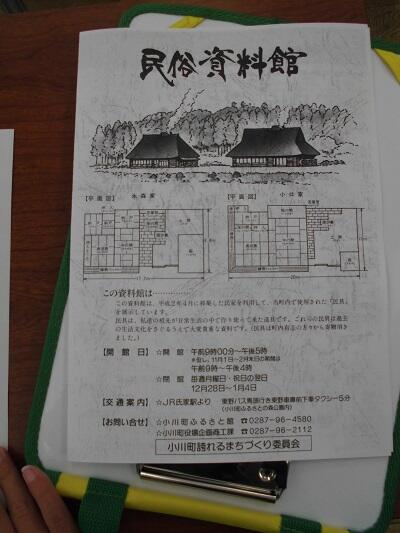 民俗資料館
【平面図】 永森家
【平面図】 小林家
この資料館は……
この資料館は、平成2年4月に移築した民家を利用して、当町内で使用された「民具」
を展示しています。
民具は、私達の祖先が日常生活の中で作り使って来た道具です。これらの民具は過去
の生活文化をさぐるうえで大変貴重な資料です。(民具は町内有志の方々から寄贈頂き
ました。)
【開館日】☆開館 午前9時00分〜午後5時
※但し、11月1日〜2月末日の期間は
午前9時〜午後4時
☆閉館 毎週月曜日・祝日の翌日
12月28日〜1月4日
【交通案内】☆JR氏家駅より 東野バス馬頭行き東野車庫前下車タクシー5分
(小川町ふるさとの森公園内)
【お問い合せ】☆小川町ふるさと館 ☎0287-96-4580
☆小川町役場企画商工課 ☎0287-96-2112
小川町誇れるまちづくり委員会